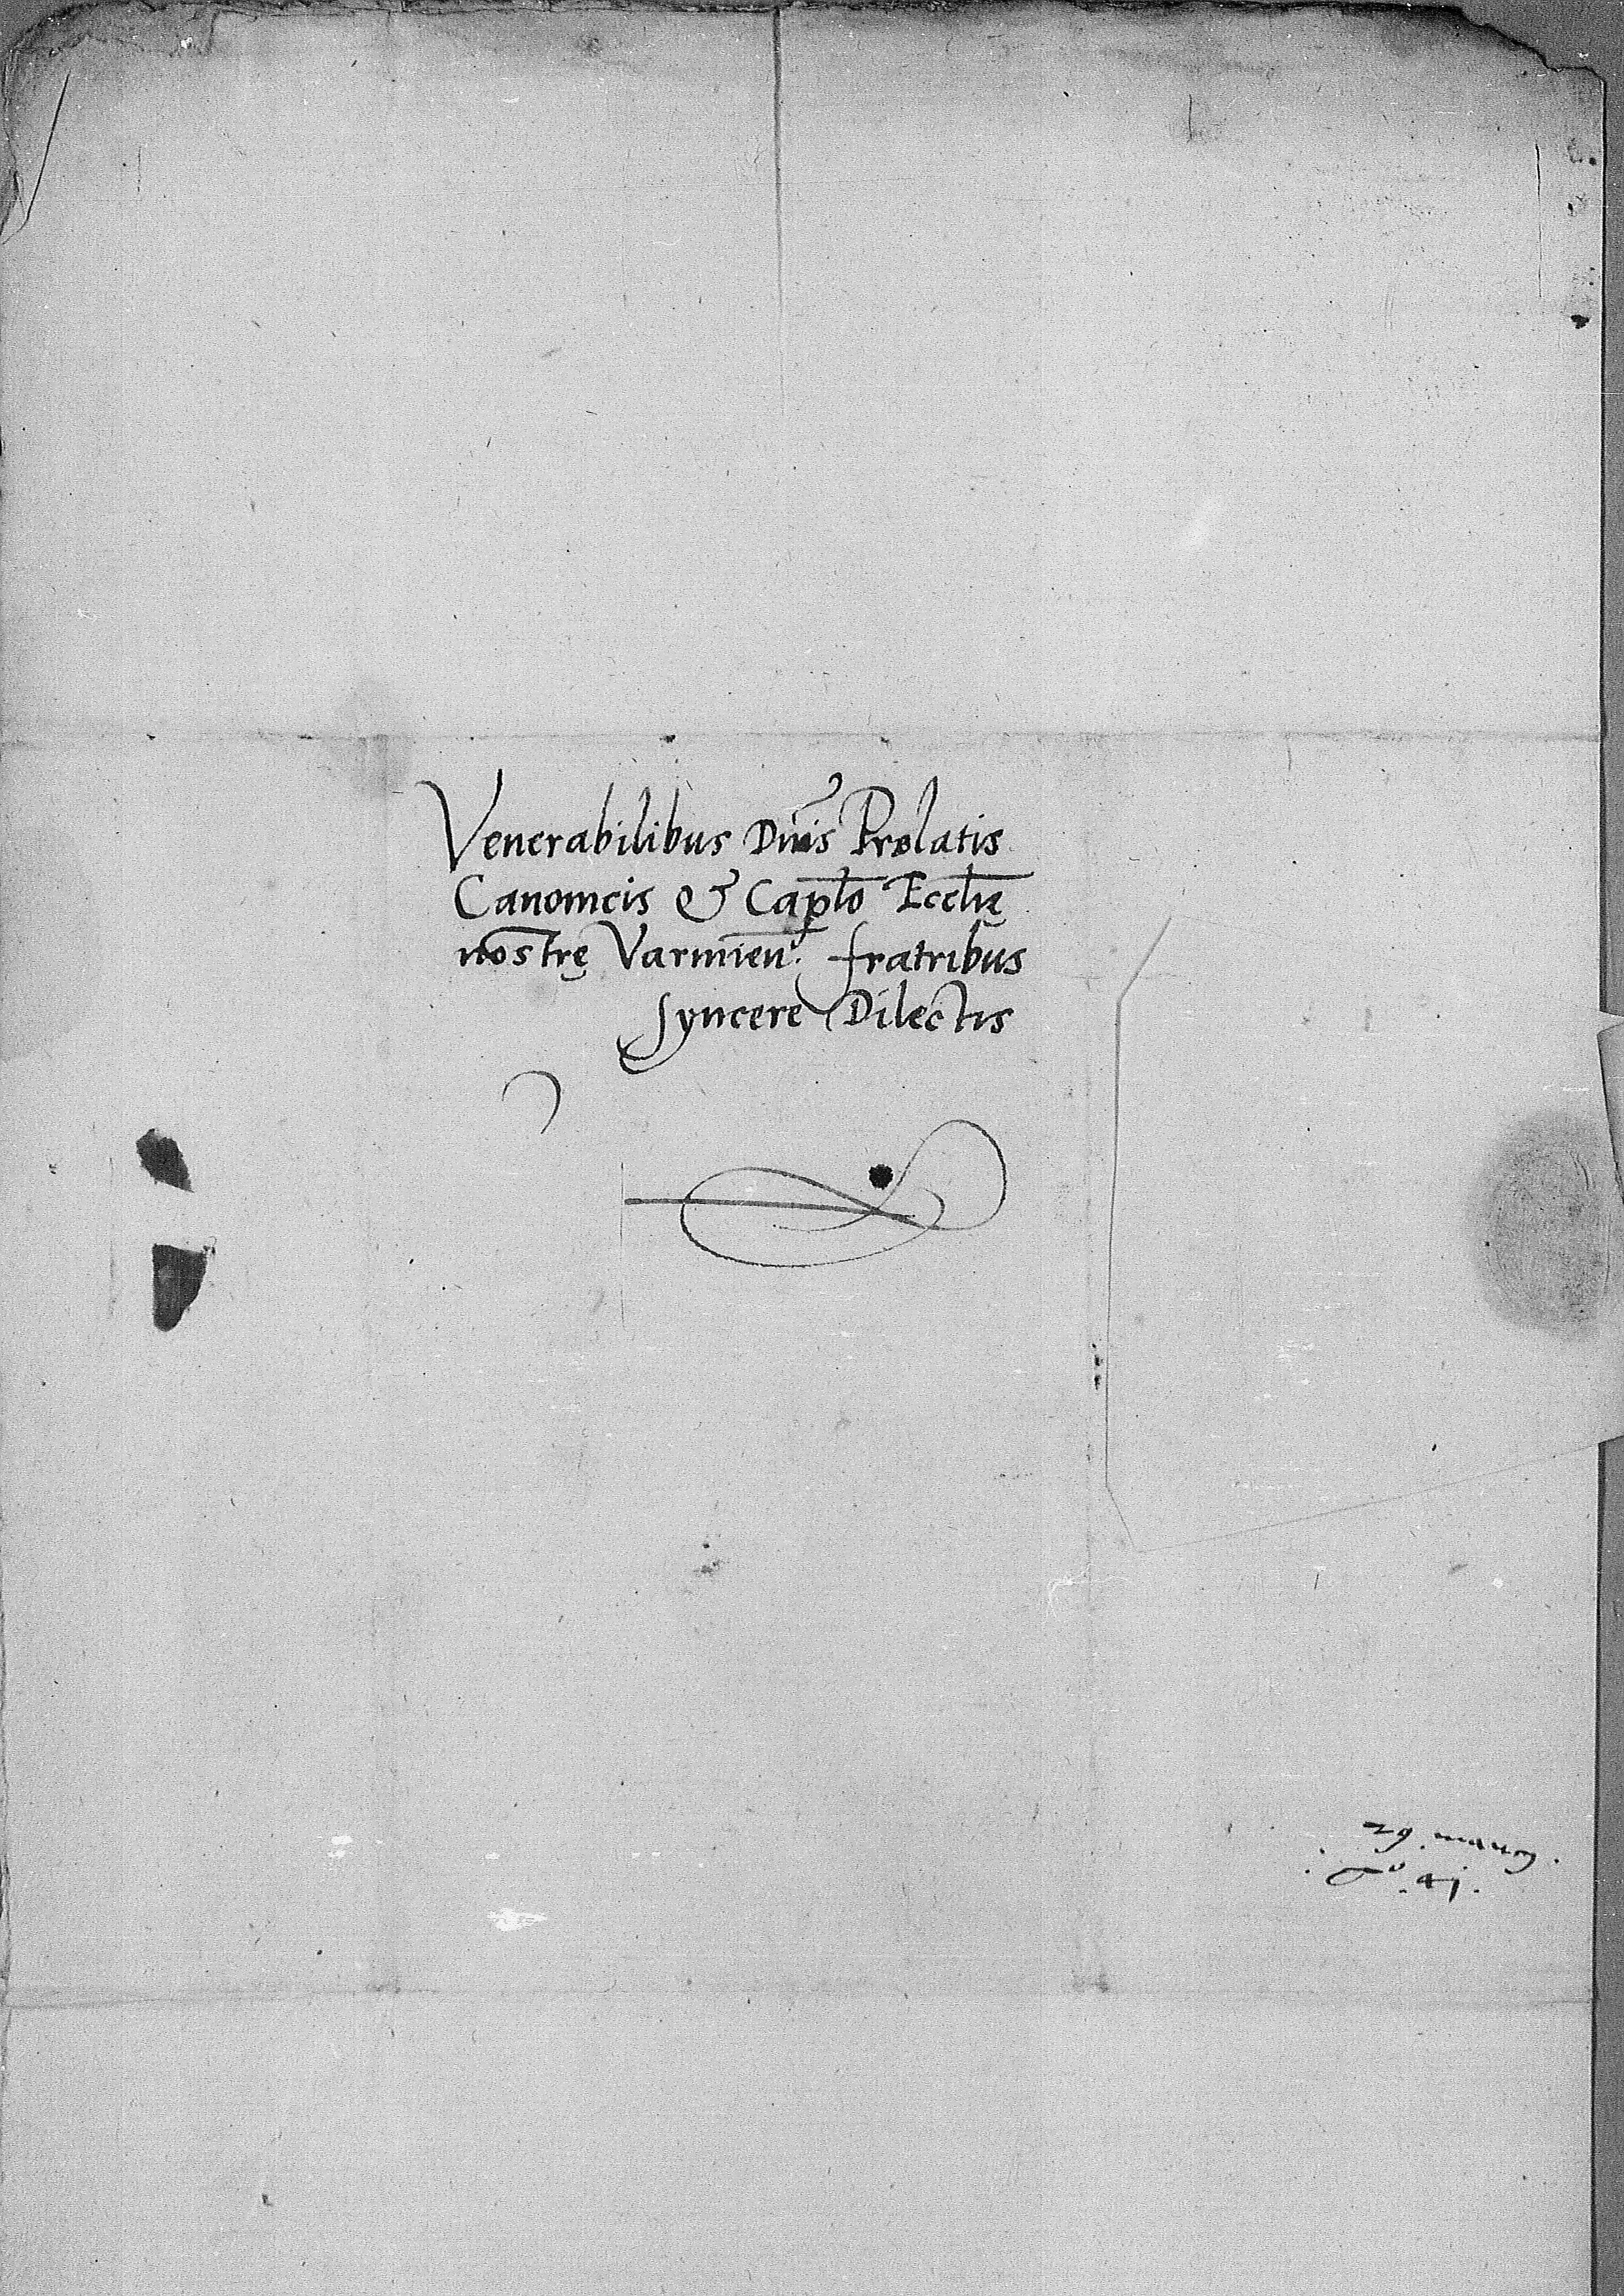 Venerabilibus Dnis Prelatis
Canonicis & Caplo Ecclię
nostrę Varmien. fratribus
syncere Dilectis
29
41.